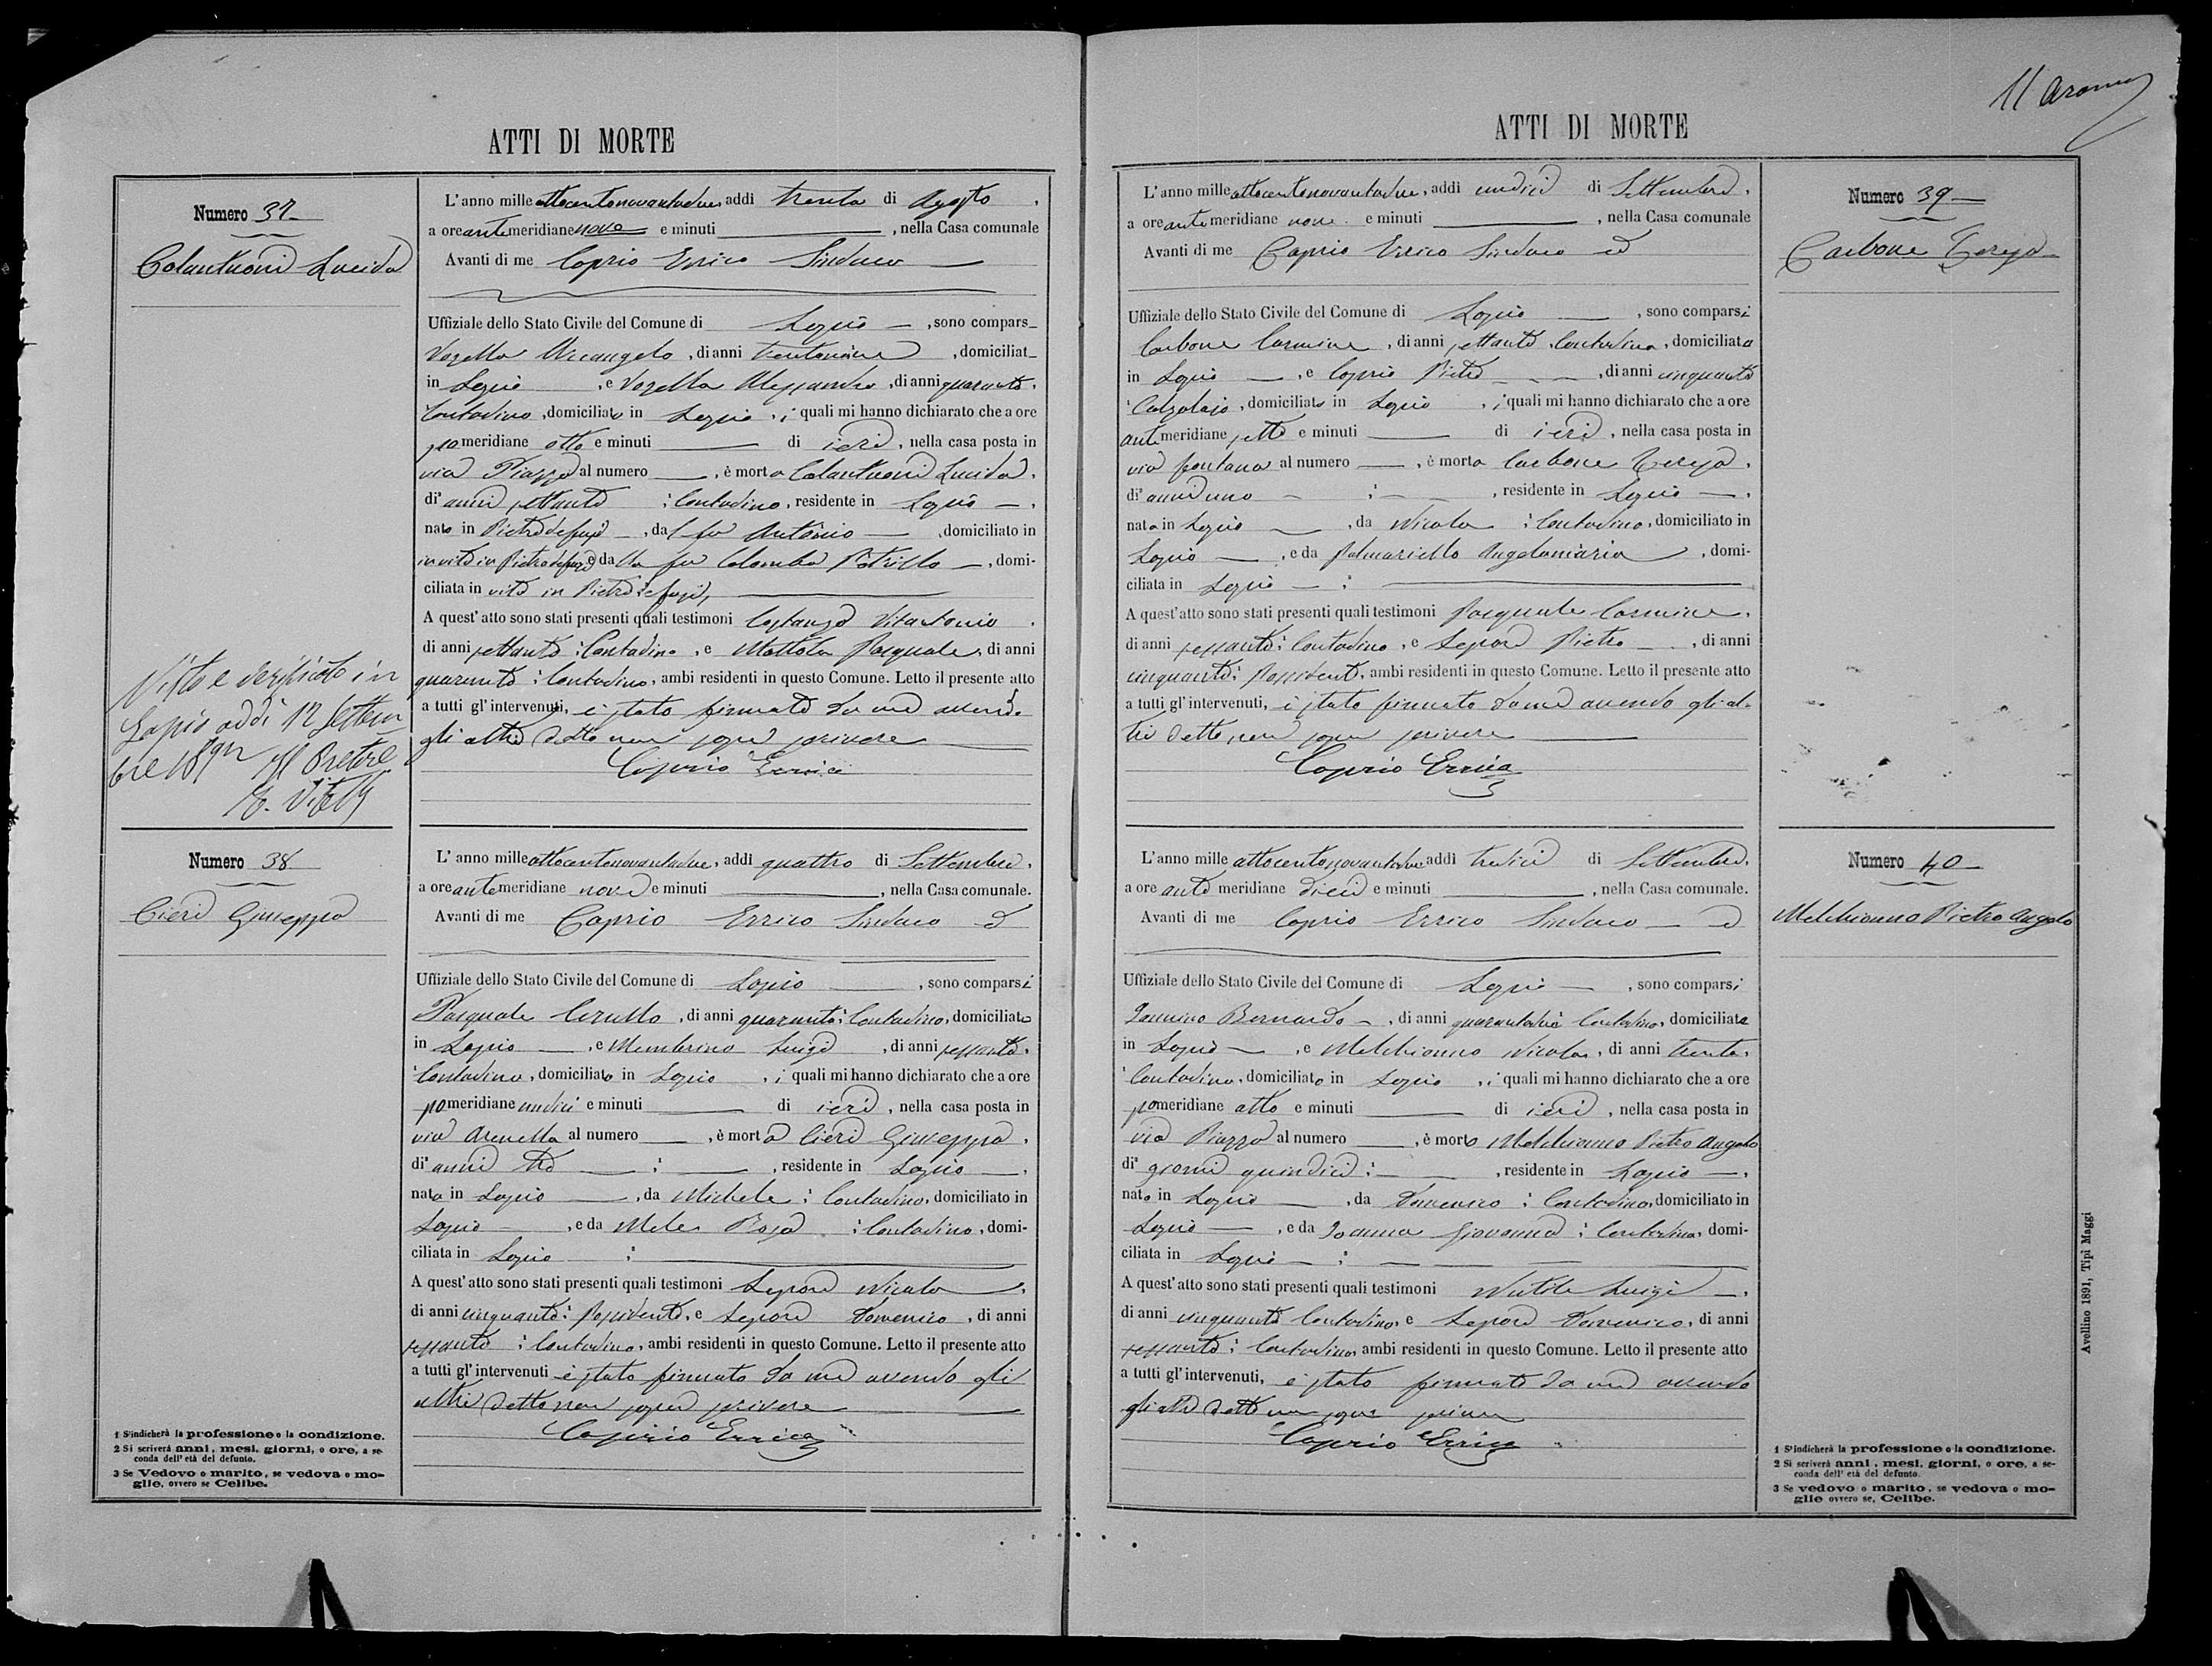 11 Aromy
ATTI DI MORTE
Numero 37
Colantuoni Lucida
L'anno mille ottocentonovantadue, addì trenta di Agosto,
a ore antemeridiane nove e minuti , nella Casa comunale
Avanti di me Caprio Errico Sindaco
Uffiziale dello Stato Civile del Comune di Lapio , sono compars
Vozella Arcangelo, di anni trentanove , domiciliat
in Lapio , e Vozella Alessandro, di anni quaranta,
Contadino, domiciliato in Lapio, i quali mi hanno dichiarato che a ore
pomeridiane otto e minuti di ieri, nella casa posta in
via Piazza al numero , è morta Colantuoni Lucida,
di anni settanta : Contadina, residente in Lapio ,
nata in Pietradefusi , dal fu Antonio , domiciliato in
in vita in Pietradefusi e da lla fu Colomba Petrillo , domi-
ciliata in vita in Pietradefusi,
A quest'atto sono stati presenti quali testimoni Costanzo Vitantonio ,
di anni settanta : Contadino, e Mottola Pasquale, di anni
quaranta : Contadino, ambi residenti in questo Comune. Letto il presente atto
a tutti gl'intervenuti, è stato firmato da me avendo
gli altri detto non saper scrivere
Caprio Errico
Visto e verificato in
Lapio addì 12 Settem
bre 1892 Il Pretore
Numero 38
Cieri Giuseppa
L'anno mille ottocentonovantadue, addì quattro di Settembre,
a ore antemeridiane nove e minuti , nella Casa comunale.
Avanti di me Caprio Errico Sindaco ed
Uffiziale dello Stato Civile del Comune di Lapio , sono comparsi
Pasquale Cerullo, di anni quaranta : Contadino, domiciliato
in Lapio , e Membrino Luigi , di anni sessanta,
Contadino, domiciliato in Lapio , i quali mi hanno dichiarato che a ore
pomeridiane undici e minuti di ieri, nella casa posta in
via Arenella al numero , è morta Cieri Giuseppa,
di anni tre : , residente in Lapio ,
nata in Lapio , da Michele : Contadino, domiciliato in
Lapio , e da Mele Rosa : Contadina, domi-
ciliata in Lapio :
A quest'atto sono stati presenti quali testimoni Lepore Nicola ,
di anni cinquanta : Possidente, e Lepore Domenico, di anni
sessanta : Contadino, ambi residenti in questo Comune. Letto il presente atto
a tutti gl'intervenuti è stato firmato da me avendo gli
altri detto non saper scrivere
Caprio Errico
1 S'indicherà la professione o la condizione.
2 Si scriverà anni, mesi, giorni, o ore, a se-
conda dell'età del defunto.
3 Se Vedovo o marito, se vedova o mo-
glie, ovvero se Celibe.
ATTI DI MORTE
Numero 39
Carbone Teresa
L'anno mille ottocentonovantadue, addì undici di Settembre,
a ore antemeridiane nove e minuti , nella Casa comunale
Avanti di me Caprio Errico Sindaco ed
Uffiziale dello Stato Civile del Comune di Lapio , sono comparsi
Carbone Carmine, di anni settanta, Contadino, domiciliato
in Lapio , e Caprio Pietro , di anni cinquanta
Calzolajo, domiciliato in Lapio , i quali mi hanno dichiarato che a ore
antimeridiane sette e minuti di ieri, nella casa posta in
via fontana al numero , è morta Carbone Teresa,
di anni uno : , residente in Lapio ,
nata in Lapio , da Nicola : Contadino, domiciliato in
Lapio , e da Palmariello Angelamaria , domi-
ciliata in Lapio :
A quest'atto sono stati presenti quali testimoni Pasquale Carmine,
di anni sessanta : Contadino, e Lepore Pietro , di anni
cinquanta : Possidente, ambi residenti in questo Comune. Letto il presente atto
a tutti gl'intervenuti, è stato firmato da me avendo gli al-
tri detto non saper scrivere
Caprio Errico
Numero 40
Melchionno Pietro Angelo
L'anno mille ottocentonovantadue addì tredici di Settembre,
a ore ante meridiane dieci e minuti , nella Casa comunale.
Avanti di me Caprio Errico Sindaco ed
Uffiziale dello Stato Civile del Comune di Lapio , sono comparsi
Bernardo , di anni Contadino, domiciliato
in Lapio , e Melchionno Nicola, di anni trenta,
Contadino, domiciliato in Lapio , i quali mi hanno dichiarato che a ore
pomeridiane otto e minuti di ieri, nella casa posta in
via Piazza al numero , è morto Melchionno Pietro Angelo
di giorni quindici : , residente in Lapio ,
nato in Lapio , da Domenico : Contadino, domiciliato in
Lapio , e da Giovanna : Contadina, domi-
ciliata in Lapio :
A quest'atto sono stati presenti quali testimoni Luigi ,
di anni cinquanta Contadino, e Lepore Domenico, di anni
sessanta : Contadino, ambi residenti in questo Comune. Letto il presente atto
a tutti gl'intervenuti, è stato firmato da me avendo
gli altri detto non saper scrivere
Caprio Errico
1 S'indicherà la professione o la condizione.
2 Si scriverà anni, mesi, giorni, o ore, a se-
conda dell'età del defunto.
3 Se vedovo o marito, se vedova o mo-
glie ovvero se, Celibe.
Avellino 1891, Tipi Maggi